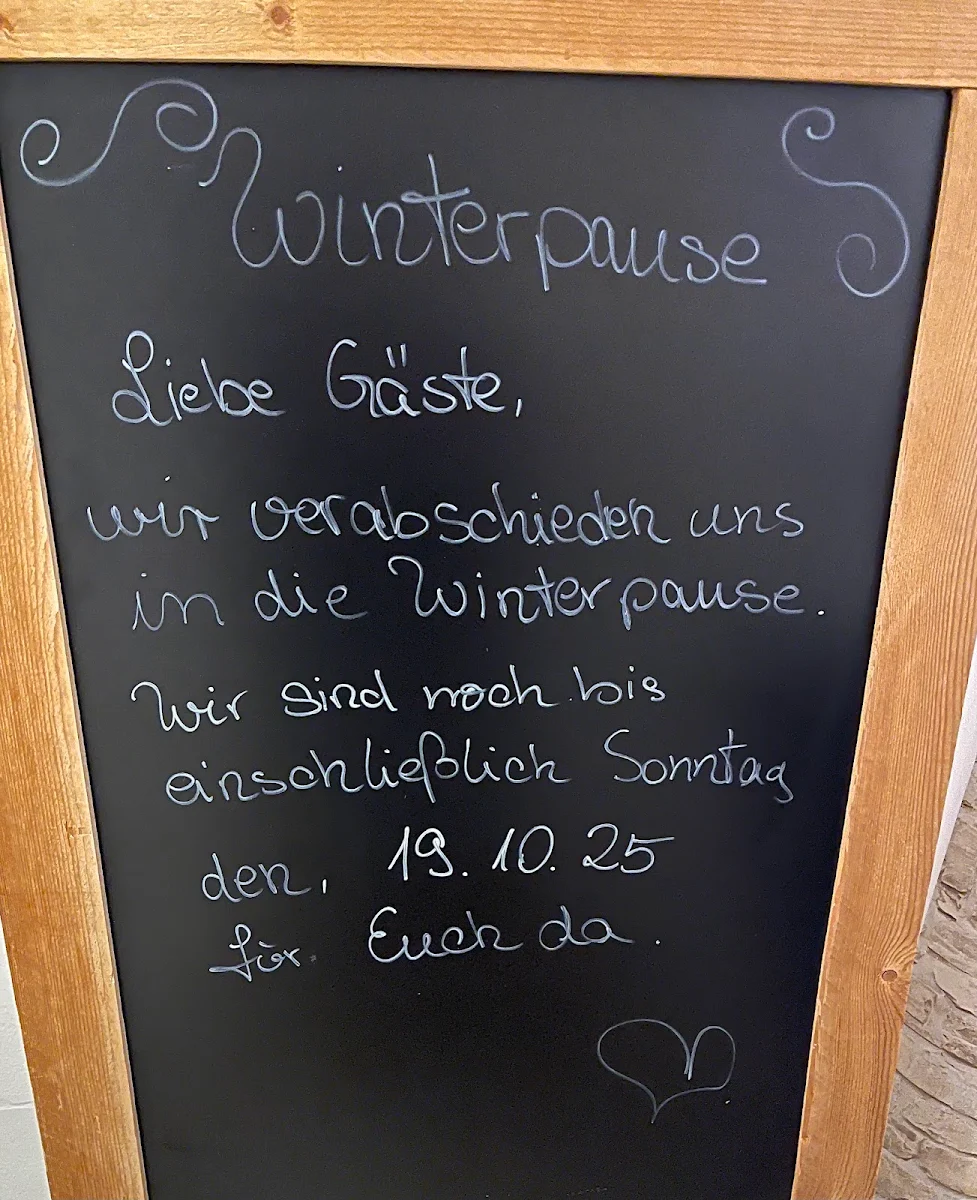 Winterpause
Liebe Gäste,
wir verabschieden uns
in die Winterpause.
Wir sind noch bis
einschließlich Sonntag
den, 19.10.25
für Euch da.